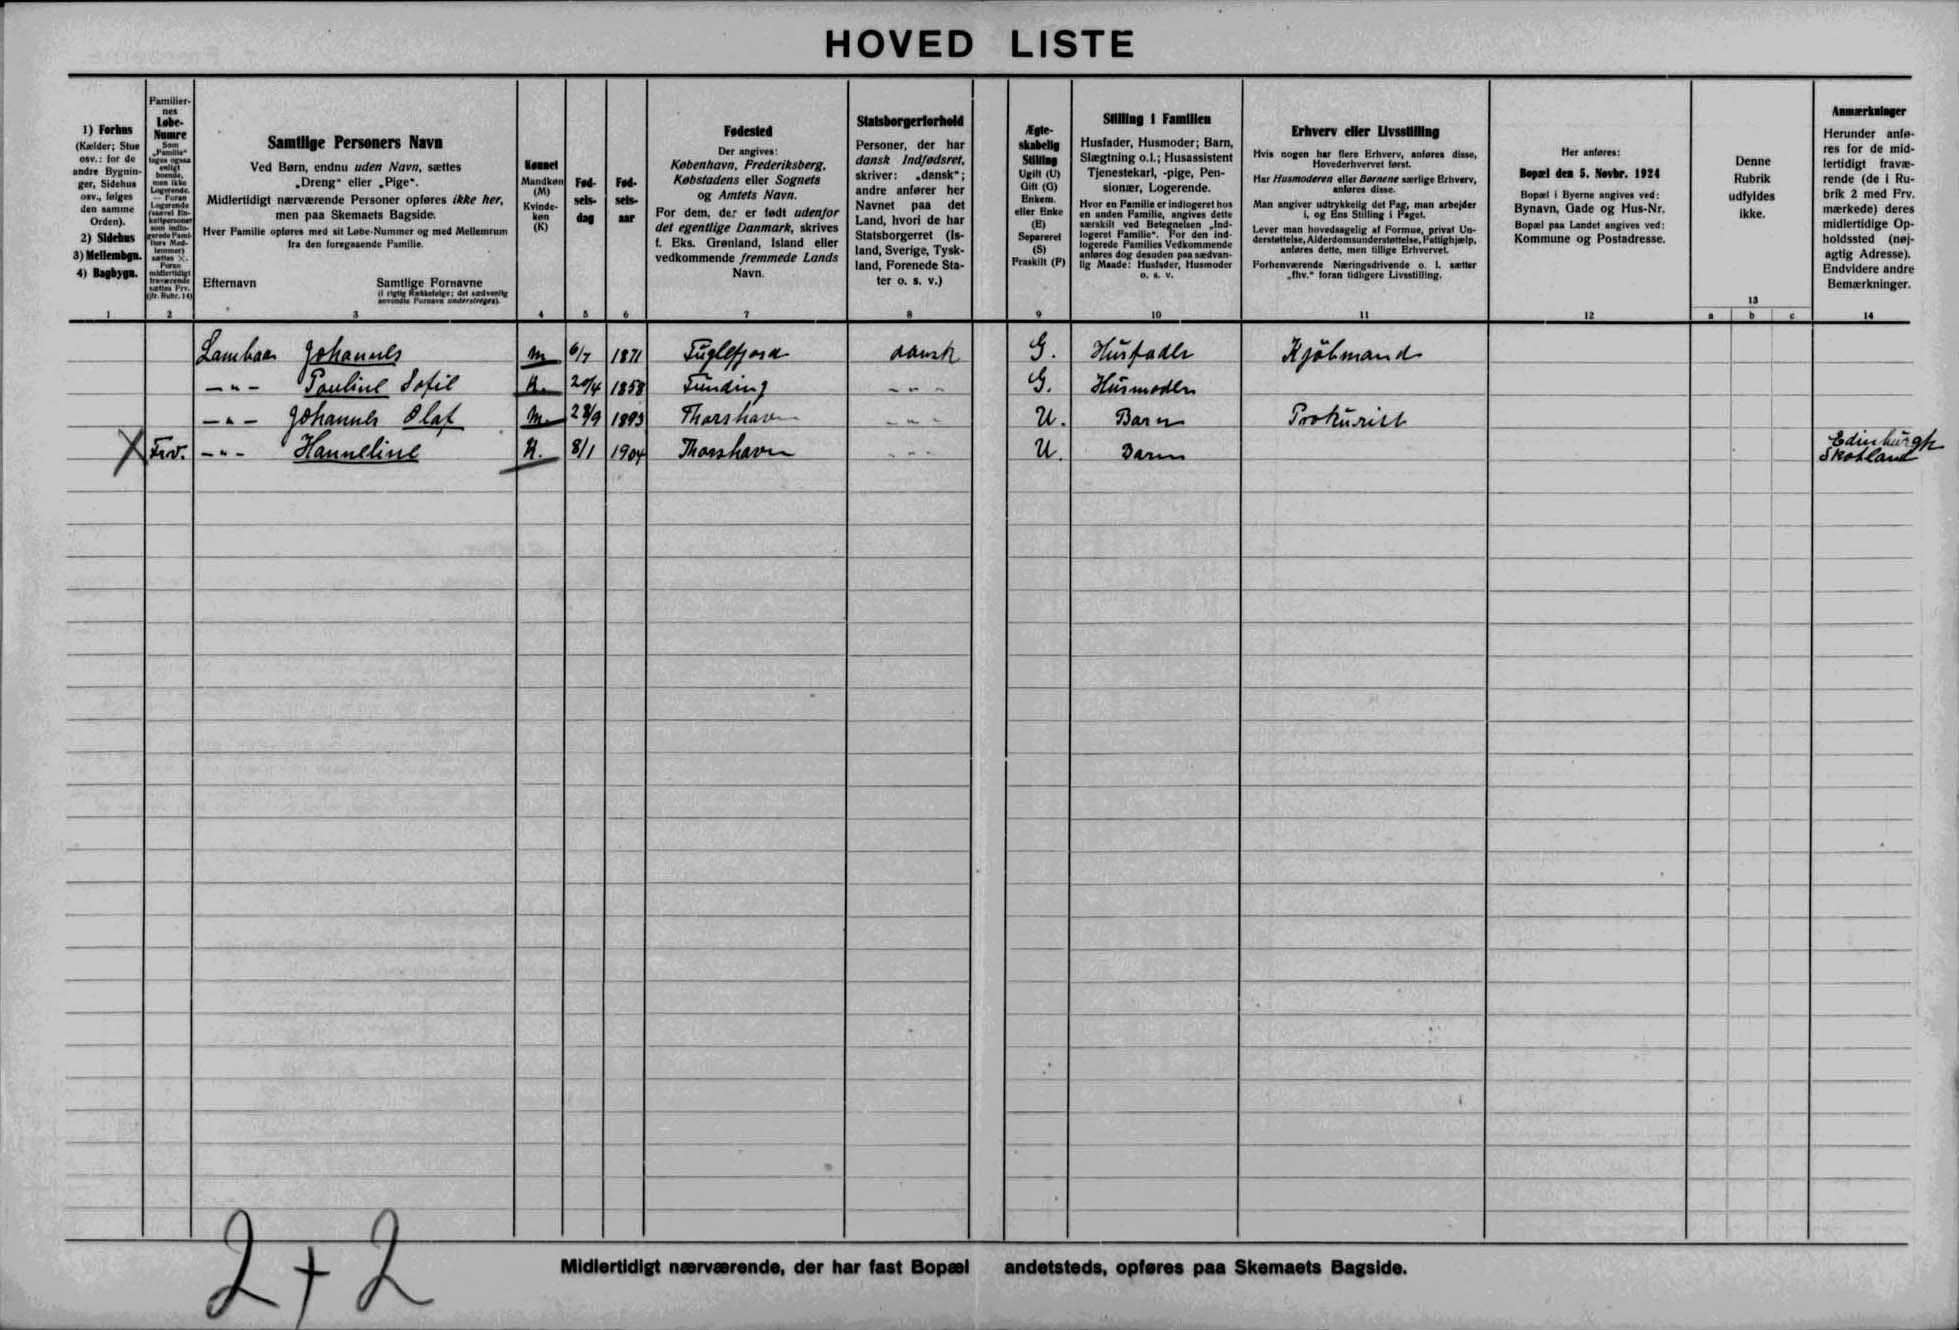 HOVED LISTE
1) Forhus
(Kælder; Stue
osv.: for de
andre Bygnin-
ger, Sidehus
osv., følges
den samme
Orden).
2) Sidehus
3) Mellembgn.
4) Bagbygn.
1
Familier-
nes
Løbe-
Numre
Som
„Familie“
tages ogsaa
enligt
boende,
men ikke
Logerende.
— Foran
Logerende
sættes X.
Foran
midlertidigt
fraværende
sættes Frv.
(jfr. Rubr. 14)
2
Samtlige Personers Navn
Ved Børn, endnu uden Navn, sættes
„Dreng“ eller „Pige“.
Midlertidigt nærværende Personer opføres ikke her,
men paa Skemaets Bagside.
Hver Familie opføres med sit Løbe-Nummer og med Mellemrum
fra den foregaaende Familie.
Efternavn Samtlige Fornavne
(i rigtig Rækkefølge; det sædvanlig
anvendte Fornavn understreges).
3
Kønnet
Mandkøn
(M)
Kvinde-
køn
(K)
4
Fød-
sels-
dag
5
Fød-
sels-
aar
6
Fødested
Der angives:
København, Frederiksberg,
Købstadens eller Sognets
og Amtets Navn.
For dem, der er født udenfor
det egentlige Danmark, skrives
f. Eks. Grønland, Island eller
vedkommende fremmede Lands
Navn.
7
Statsborgerforhold
Personer, der har
dansk Indfødsret,
skriver: „dansk“;
andre anfører her
Navnet paa det
Land, hvori de har
Statsborgerret (Is-
land, Sverige, Tysk-
land, Forenede Sta-
ter o. s. v.)
8
Ægte-
skabelig
Stilling
Ugift (U)
Gift (G)
Enkem.
eller Enke
(E)
Separeret
(S)
Fraskilt (F)
9
Stilling i Familien
Husfader, Husmoder; Barn,
Slægtning o.l.; Husassistent
Tjenestekarl, -pige, Pen-
sionær, Logerende.
Hvor en Familie er indlogeret hos
en anden Familie, angives dette
særskilt ved Betegnelsen „Ind-
logeret Familie“. For den ind-
logerede Families Vedkommende
anføres dog desuden paa sædvan-
lig Maade: Husfader, Husmoder
o. s. v.
10
Erhverv eller Livsstilling
Hvis nogen har flere Erhverv, anføres disse,
Hovederhvervet først.
Har Husmoderen eller Børnene særlige Erhverv,
anføres disse.
Man angiver udtrykkelig det Fag, man arbejder
i, og Ens Stilling i Faget.
Lever man hovedsagelig af Formue, privat Un-
derstøttelse, Alderdomsunderstøttelse, Fattighjælp,
anføres dette, men tillige Erhvervet.
Forhenværende Næringsdrivende o. l. sætter
„fhv.“ foran tidligere Livsstilling.
11
Her anføres:
Bopæl den 5. Novbr. 1924
Bopæl i Byerne angives ved:
Bynavn, Gade og Hus-Nr.
Bopæl paa Landet angives ved:
Kommune og Postadresse.
12
Denne
Rubrik
udfyldes
ikke.
13
a b c
Anmærkninger
Herunder anfø-
res for de mid-
lertidigt fravæ-
rende (de i Ru-
brik 2 med Frv.
mærkede) deres
midlertidige Op-
holdssted (nøj-
agtig Adresse).
Endvidere andre
Bemærkninger.
14
Lambaa Johannes M 6/7 1871 Fuglefjord dansk G. Husfader Kjöbmand
— „ — Pauline Sofie K. 20/4 1858 Funding — „ — G. Husmoder
— „ — Johannes Olaf M. 28/9 1893 Thorshavn — „ — U. Barn Prokurist
X Frv. — „ — Hanneline K. 8/1 1904 Thorshavn — „ — U. Barn Edinburgh
Skotland
2 + 2
Midlertidigt nærværende, der har fast Bopæl andetsteds, opføres paa Skemaets Bagside.